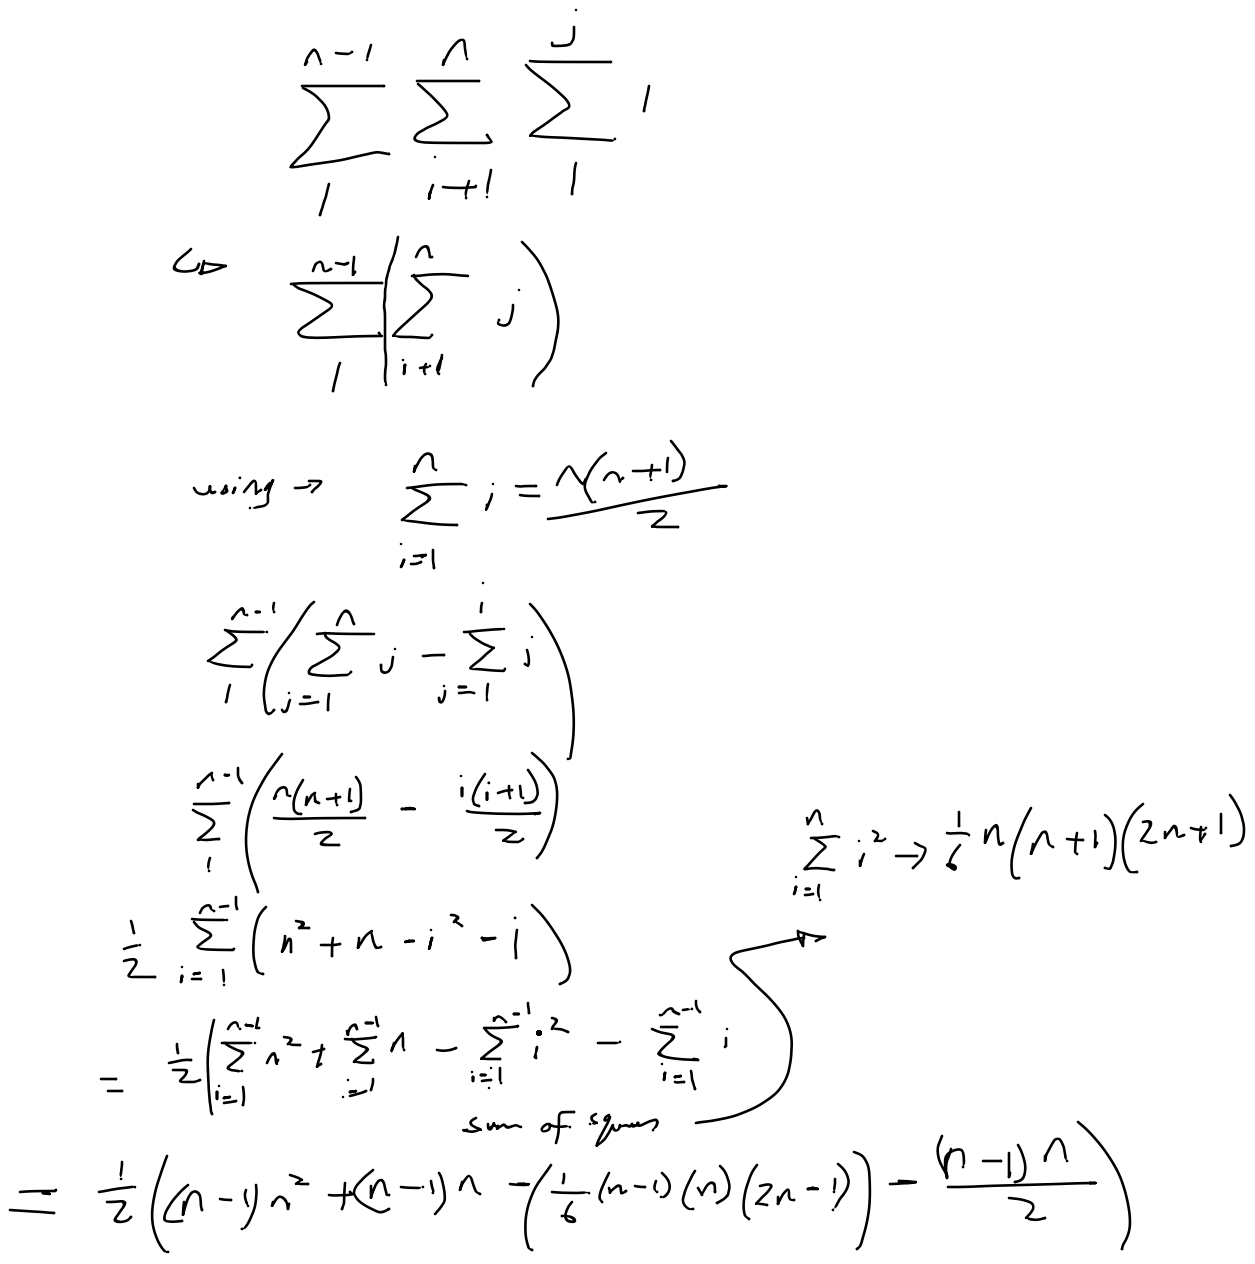 \sum_{1}^{n-1} \sum_{i+1}^{n} \sum_{1}^{j} 1
↳ \sum_{1}^{n-1} \left( \sum_{i+1}^{n} j \right)
using → \sum_{i=1}^{n} i = \frac{n(n+1)}{2}
\sum_{1}^{n-1} \left( \sum_{j=1}^{n} j - \sum_{j=1}^{i} j \right)
\sum_{1}^{n-1} \left( \frac{n(n+1)}{2} - \frac{i(i+1)}{2} \right)
\sum_{i=1}^{n} i^2 → \frac{1}{6} n(n+1)(2n+1)
\frac{1}{2} \sum_{i=1}^{n-1} \left( n^2 + n - i^2 - i \right)
= \frac{1}{2} ( \sum_{i=1}^{n-1} n^2 + \sum_{i=1}^{n-1} n - \sum_{i=1}^{n-1} i^2 - \sum_{i=1}^{n-1} i
sum of squares
= \frac{1}{2} \left( (n-1) n^2 + (n-1) n - \left( \frac{1}{6} (n-1)(n)(2n-1) \right) - \frac{(n-1) n}{2} \right)